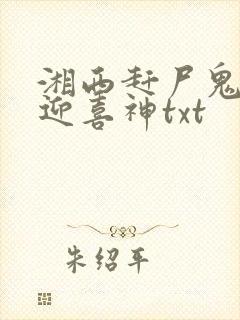 湘西赶尸鬼
迎喜神txt
朱绍平